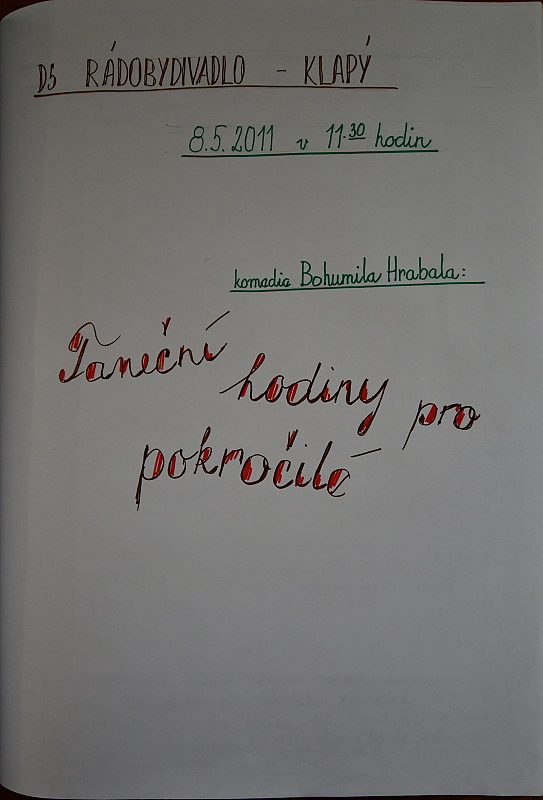 DS RÁDOBYDIVADLO - KLAPÝ
8.5.2011 v 11.30 hodin
komedie Bohumila Hrabala:
Taneční hodiny pro
pokročilé